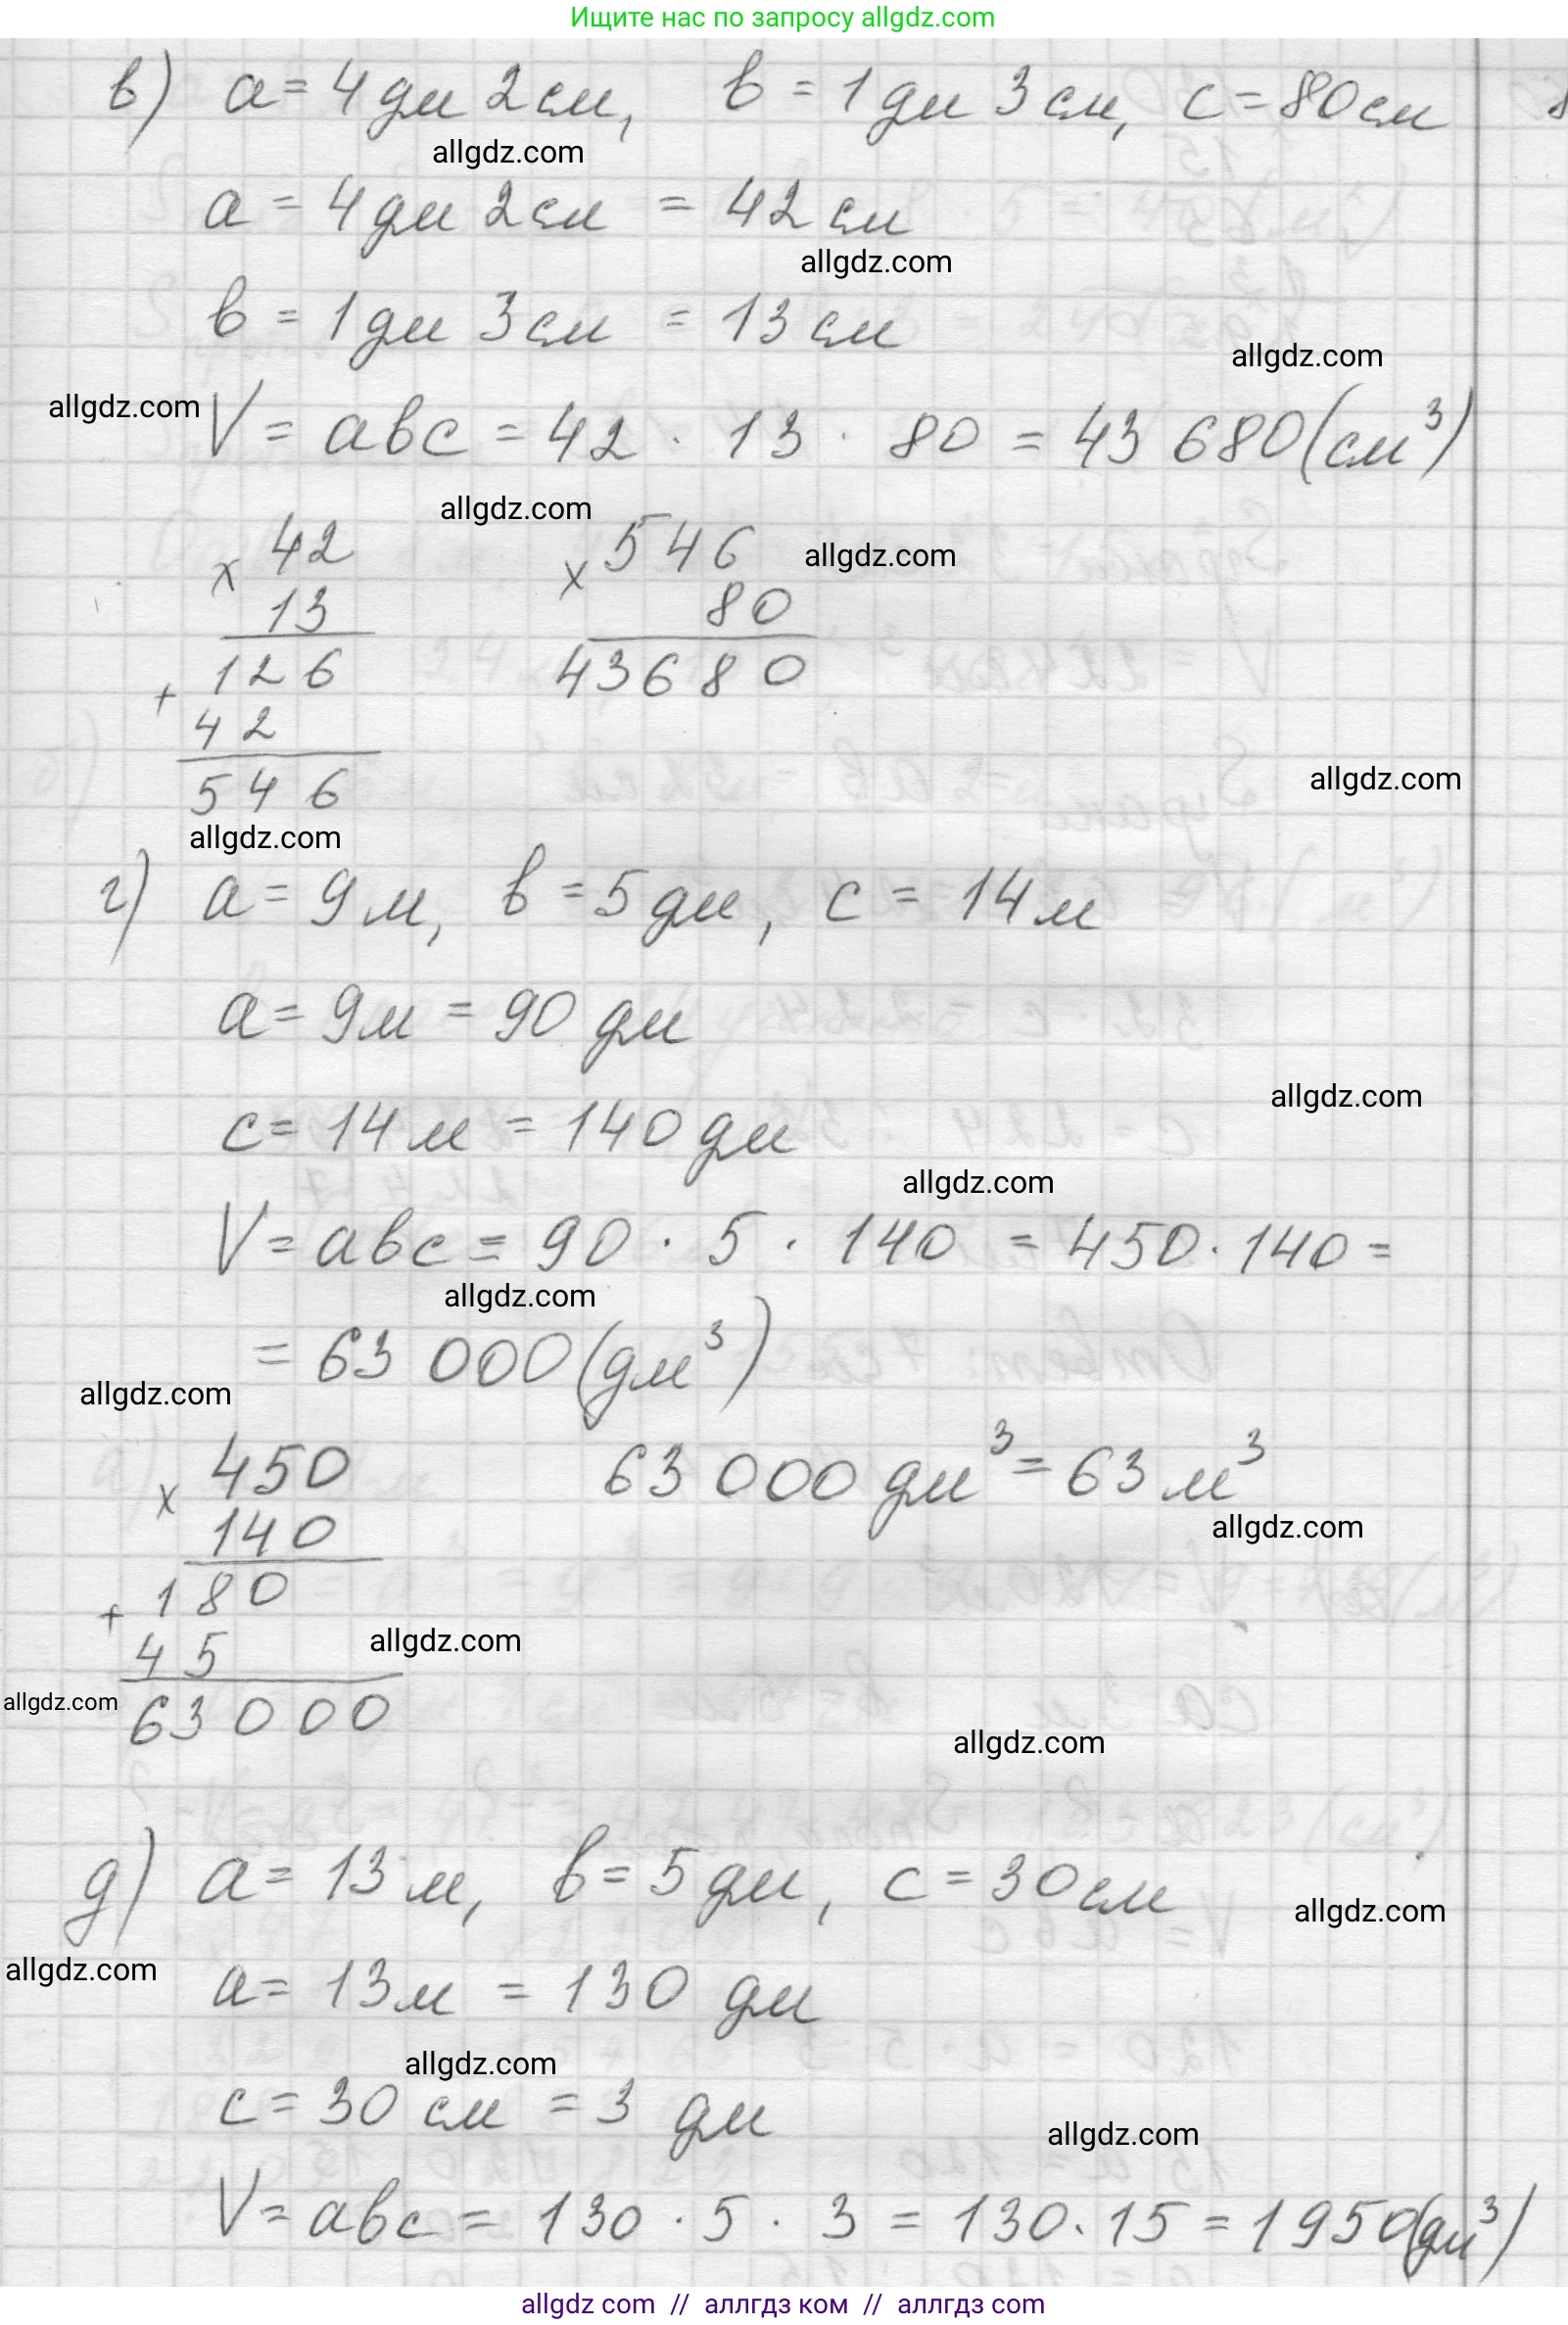 Ищите нас по запросу allgdz.com
в) a = 4 дм 2 см, b = 1 дм 3 см, c = 80 см
allgdz.com
a = 4 дм 2 см = 42 см
allgdz.com
b = 1 дм 3 см = 13 см
allgdz.com
allgdz.com
V = abc = 42 · 13 · 80 = 43 680 (см³)
allgdz.com
× 42 × 546
allgdz.com
13 80
126 43680
+ 42
546
allgdz.com
allgdz.com
г) a = 9 м, b = 5 дм, c = 14 м
a = 9 м = 90 дм
allgdz.com
c = 14 м = 140 дм
allgdz.com
V = abc = 90 · 5 · 140 = 450 · 140 =
allgdz.com
= 63 000 (дм³)
allgdz.com
× 450 63 000 дм³ = 63 м³
allgdz.com
140
180
+ 45
allgdz.com
allgdz.com
63000
allgdz.com
д) a = 13 м, b = 5 дм, c = 30 см
allgdz.com
allgdz.com
a = 13 м = 130 дм
allgdz.com
c = 30 см = 3 дм
allgdz.com
V = abc = 130 · 5 · 3 = 130 · 15 = 1950 (дм³)
allgdz com // аллгдз ком // аллгдз com